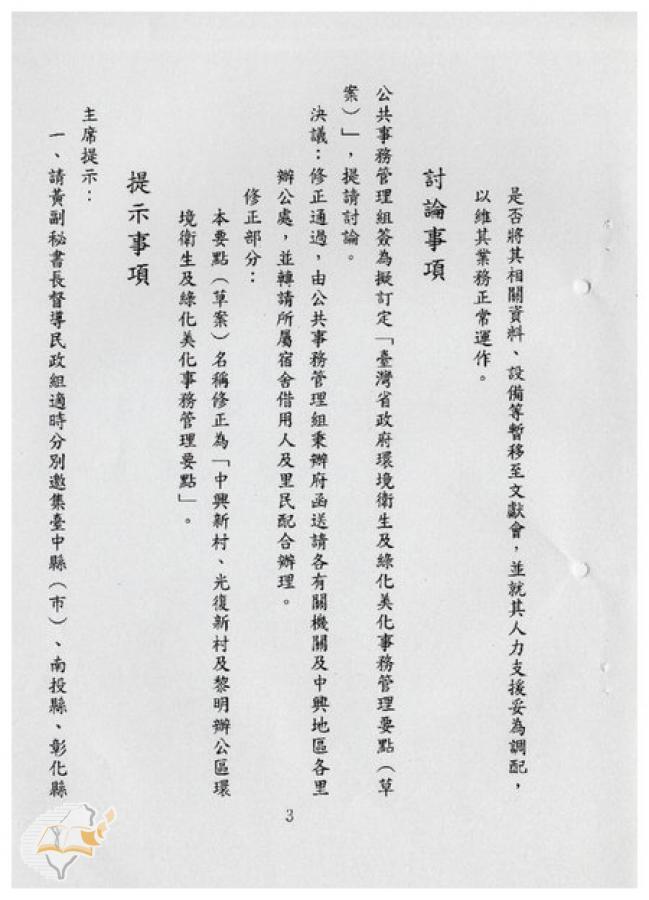 是否將其相關資料、設備等暫移至文獻會，並就其人力支援妥為調配，
以維其業務正常運作。
討論事項
公共事務管理組簽為擬訂定「臺灣省政府環境衛生及綠化美化事務管理要點（草
案）」，提請討論。
決議：修正通過，由公共事務管理組秉辦府函送請各有關機關及中興地區各里
辦公處，並轉請所屬宿舍借用人及里民配合辦理。
修正部分：
本要點（草案）名稱修正為「中興新村、光復新村及黎明辦公區環
境衛生及綠化美化事務管理要點」。
提示事項
主席提示：
一、請黃副秘書長督導民政組適時分別邀集臺中縣（市）、南投縣、彰化縣
3